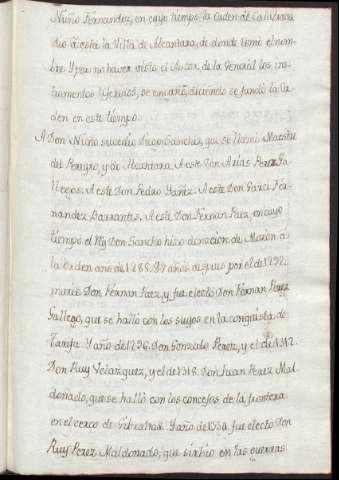 Nuño Fernandez, en cuyo tiempo, la Orden de Calatrava
dio a esta la Villa de Alcantara, de donde tomó el nom-
bre. Y por no haver visto el Autor de la Venera los ins-
trumentos referidos, se engañó, diciendo se fundó la Or-
den en este tiempo.
A Don Nuño sucedió Diego Sanchez, que se llamó Maestre
del Pereyro, y de Alcantara. A este Don Arias Perez Ga-
llegos. A este Don Pedro Yañez. A este Don Garci Fer-
nandez Barrantes. A este Don Fernan Paez, en cuyo
tiempo el Rey Don Sancho hizo donacion de Moron à
la orden año de 1285. Y años despues por el de 1292.
murió Don Fernan Paez, y fue electo Don Fernan Perez
Gallego, que se halló con los suyos en la conquista de
Tarifa. Y año de 1296. Don Gonzalo Perez, y el de 1312.
Don Ruy Velazquez, y el de 1318. Don Suan Perez Mal
donado, que se halló con los concejos de la frontera
en el cerco de Gibraltar. Y año de 1334. fue electo Don
Ruy Perez Maldonado, que sirbio en las guerras